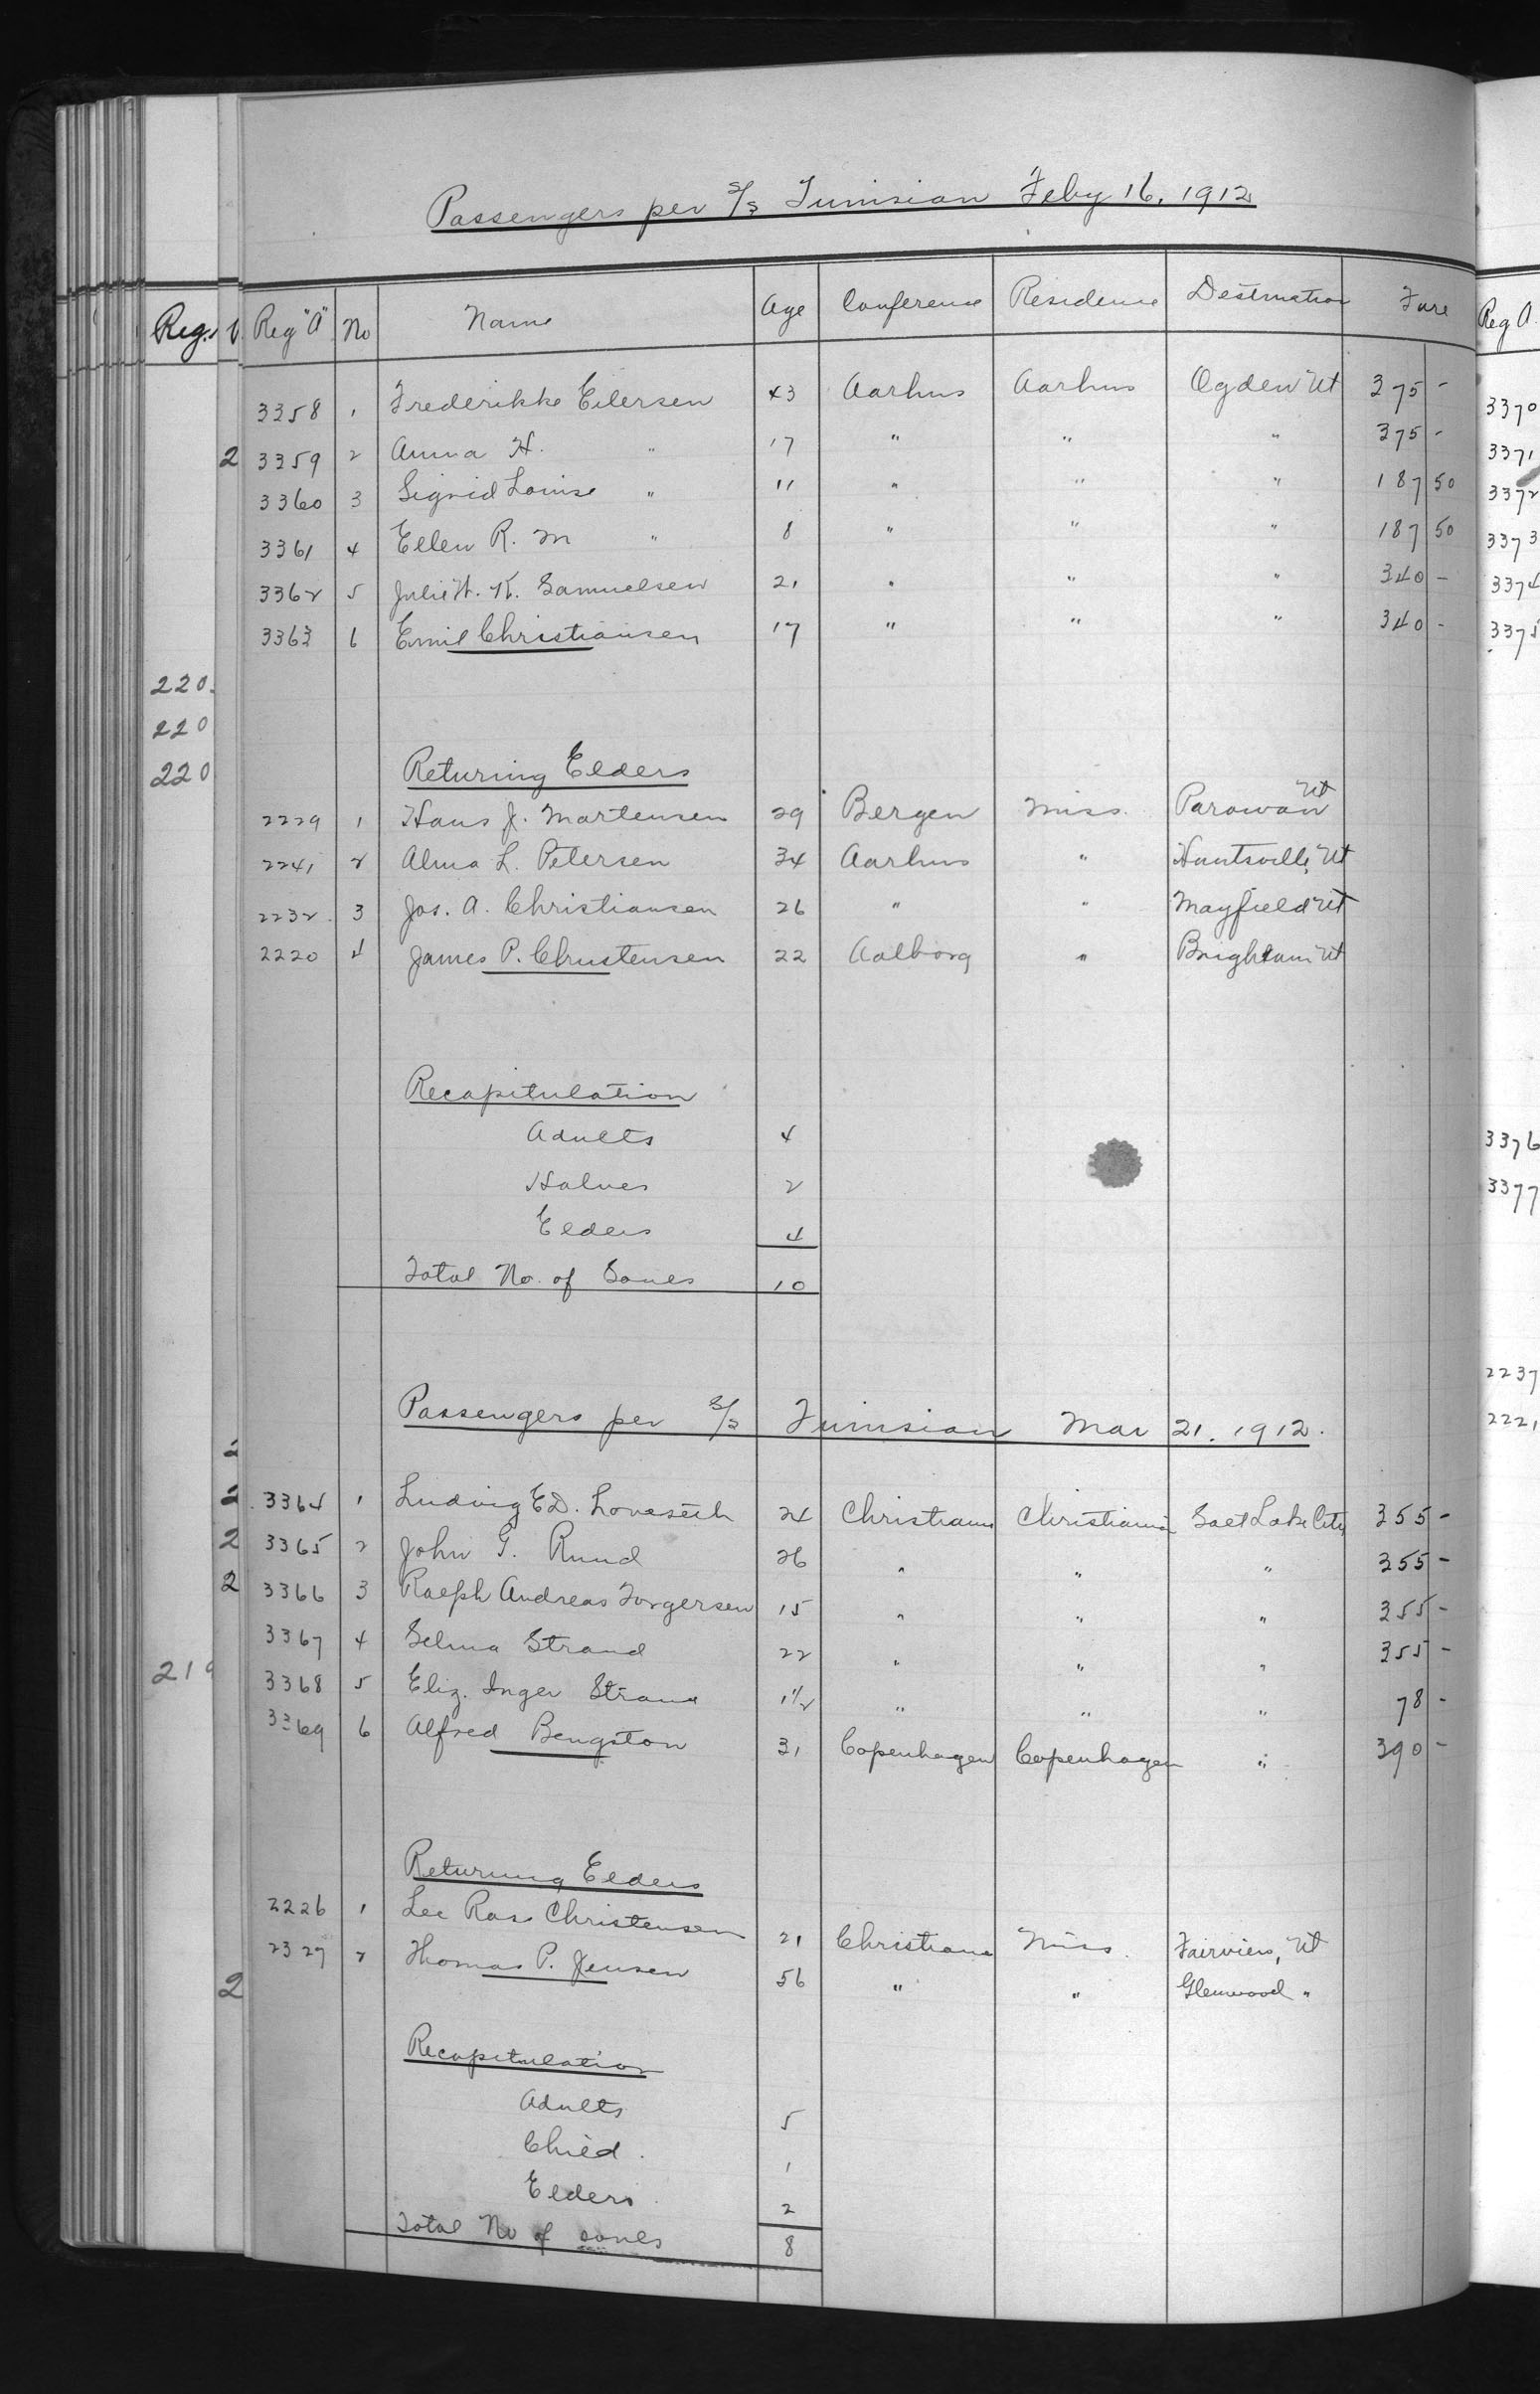 Passengers per S/S Tunisian Feby 16, 1912
Reg "A" No Name Age Conference Residence Destination Fare
3358 1 Frederikke Eilersen 43 Aarhus Aarhus Ogden Ut 375 -
3359 2 Anna H. " 17 " " " 375 -
3360 3 Sigrid Louise " 11 " " " 187 50
3361 4 Ellen R. M " 8 " " " 187 50
3362 5 Julie K. Samuelsen 21 " " " 340 -
3363 6 Emil Christiansen 17 " " " 340 -
Returning Elders
2229 1 Hans J. Mortensen 29 Bergen Miss. Parowan Ut
2241 2 Alma L. Petersen 34 Aarhus " Huntsville, Ut
2232 3 Jos. A. Christiansen 26 " " Mayfield Ut
2220 4 James P. Christensen 22 Aalborg " Brigham Ut
Recapitulation
Adults 4
Halves 2
Elders 4
Total No. of Soules 10
Passengers per S/S Tunisian Mar 21. 1912.
3364 1 Ludvig E.D. 24 Christiania Christiania Salt Lake City 355 -
3365 2 John G. Ruud 26 " " " 355 -
3366 3 Ralph Andreas Torgersen 15 " " " 355 -
3367 4 Selma Strand 22 " " " 355 -
3368 5 Eliz. Inger Strand 1 1/2 " " " 78 -
3369 6 Alfred Bengston 31 Copenhagen Copenhagen " 390 -
Returning Elders
2226 1 Lee Rass Christensen 21 Christiana Miss. Fairview, Ut
2327 2 Thomas P. Jensen 56 " " Glenwood "
Recapitulation
Adults 5
Child. 1
Elders 2
Total No of soules 8
Reg.
220.
220
220
2
2
2
2
2
219
2
Reg A.
3370
3371
3372
3373
3374
3375
3376
3377
2237
2221